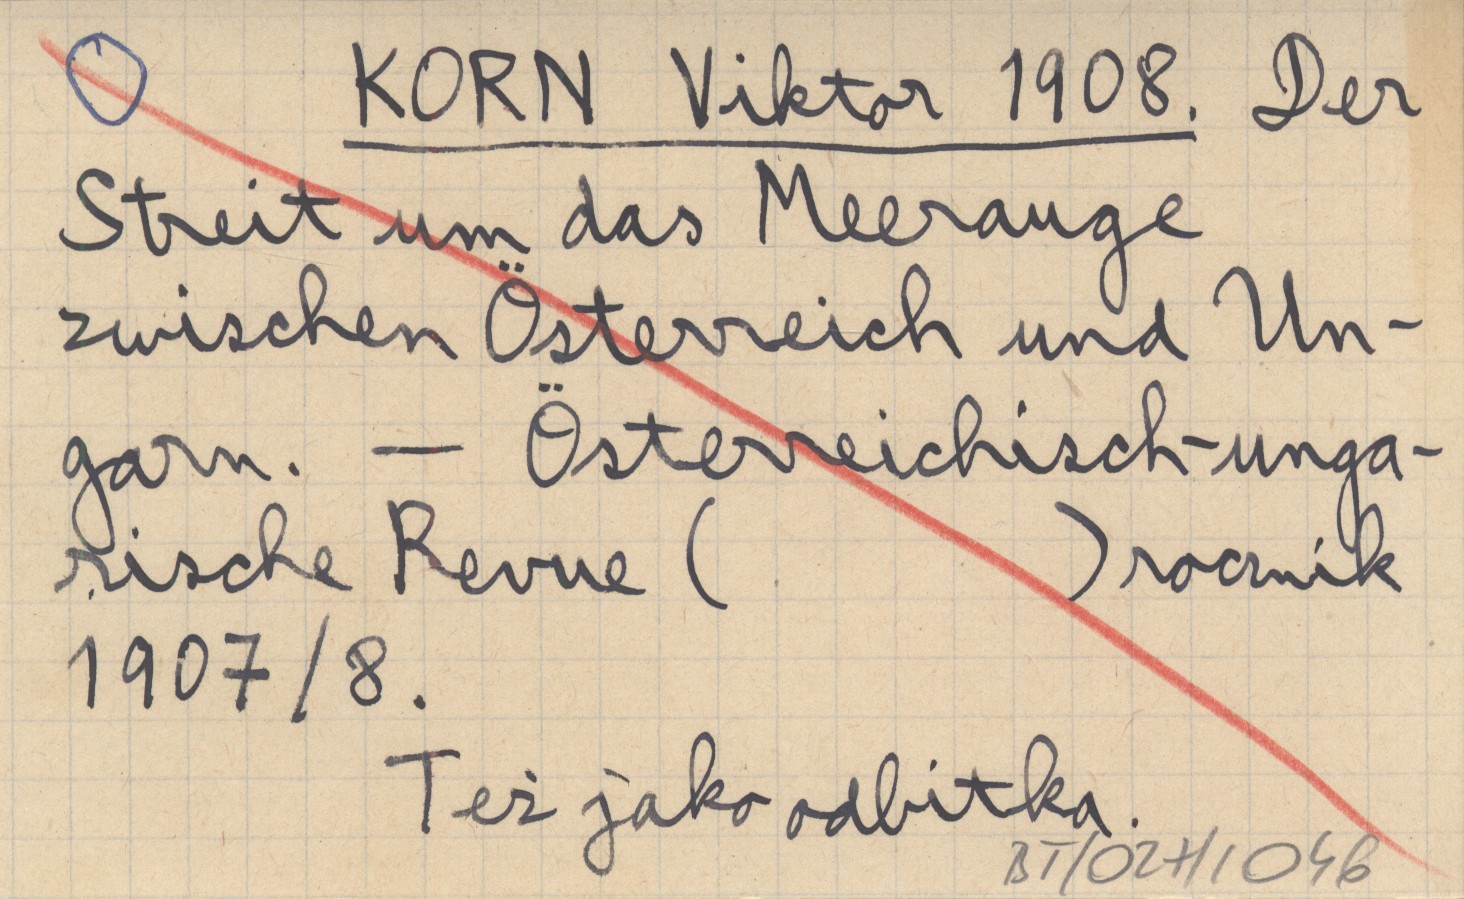 KORN Viktor 1908. Der
Streit um das Meerauge
zwischen Österreich und Un-
garn. — Österreichisch-unga-
rische Revue (                    ) rocznik
1907/8.
Też jako odbitka.
BT/027/1046